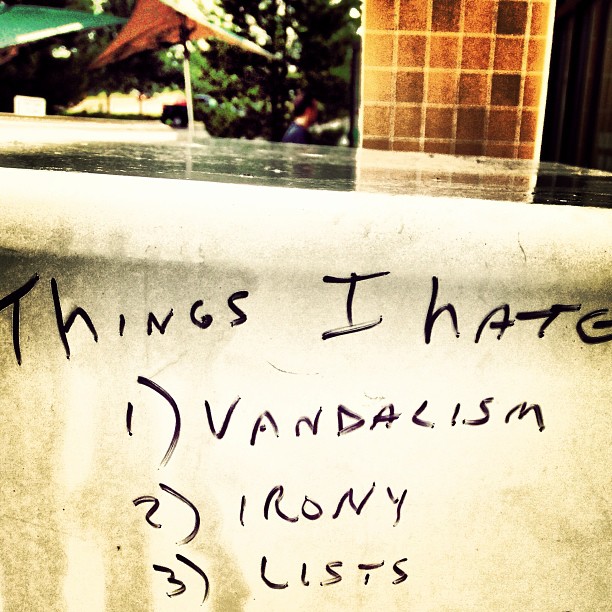 THINGS I HATE
1) VANDALISM
2) IRONY
3) LISTS